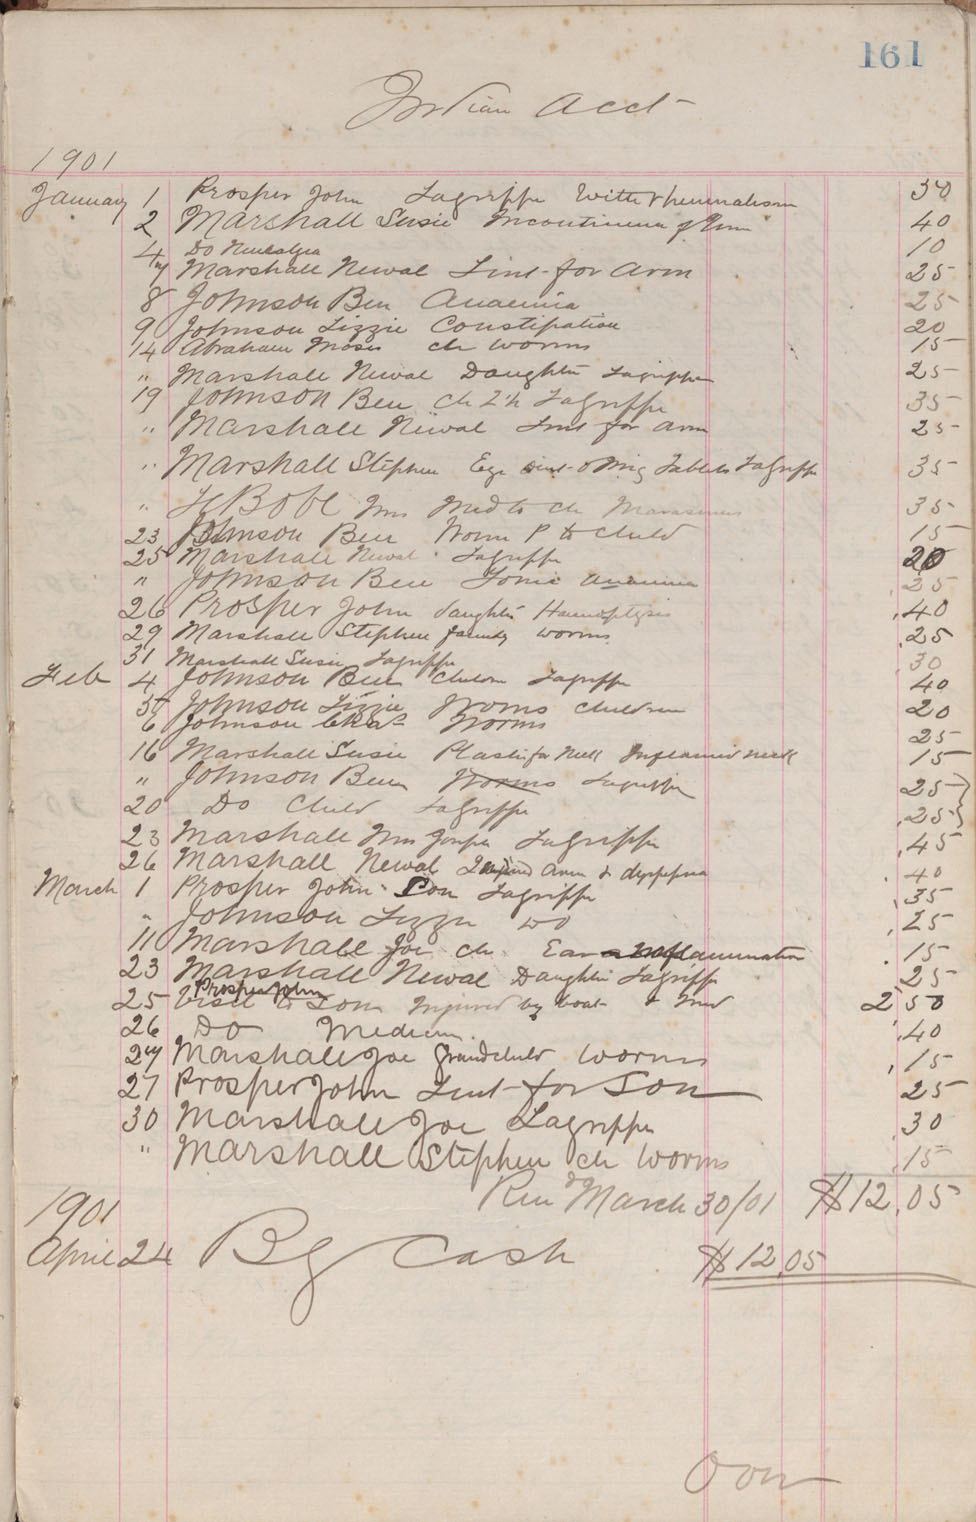 161
Indian Acct
1901
January 1 Prosper John Lagrippe with rheumatism 30
2 Marshall Susie Incontinence of Urine 40
4 Do Neuralgia 10
7 Marshall Newal Lint for arm 25
8 Johnson Ben Anaemia 25
9 Johnson Lizzie Constipation 20
14 Abraham Moses ch worms 15
" Marshall Newal Daughter Lagrippe 25
19 Johnson Ben ch Lagrippe 35
" Marshall Newal Lint for arm 25
" Marshall Stephen Tablets Lagrippe 35
" Mrs Med to ch Marasmus 35
23 Johnson Ben Worm P to child 15
25 Marshall Newal Lagrippe 20
" Johnson Ben Tonic anaemia 25
26 Prosper John daughter Haemoptysis 40
29 Marshall Stephen family worms 25
31 Marshall Susie Lagrippe 30
Feb 4 Johnson Ben children Lagrippe 40
5 Johnson Lizzie Worms children 20
6 Johnson Chas Worms 25
16 Marshall Susie Plaster for Neck Inflamed neck 15
" Johnson Ben Worms Lagrippe 25
20 Do Child Lagrippe 25
23 Marshall Mrs Lagrippe 45
26 Marshall Newal Injured arm & dyspepsia 40
March 1 Prosper John Son Lagrippe 35
" Johnson Lizzie Do 25
11 Marshall Joe ch Ear Inflammation 15
23 Marshall Newal Daughter Lagrippe 25
25 Visit to Prosper John Son Injured by boat & Med 2 50
26 Do Medicine 40
27 Marshall Joe Grandchild worms 15
27 Prosper John Lint for Son 25
30 Marshall Joe Lagrippe 30
" Marshall Stephen ch worms 15
Ren'd March 30/01 $12.05
1901
April 24 By Cash $12.05
Over